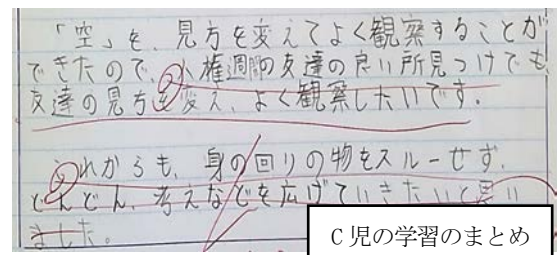 「空」を、見方を変えてよく観察することが
できたので、人権週間の友達の良い所見つけでも
友達の見方を変え、よく観察したいです。
これからも、身の回りの物をスルーせず、
どんどん、考えなどを広げていきたいと思い
ました。
C児の学習のまとめ